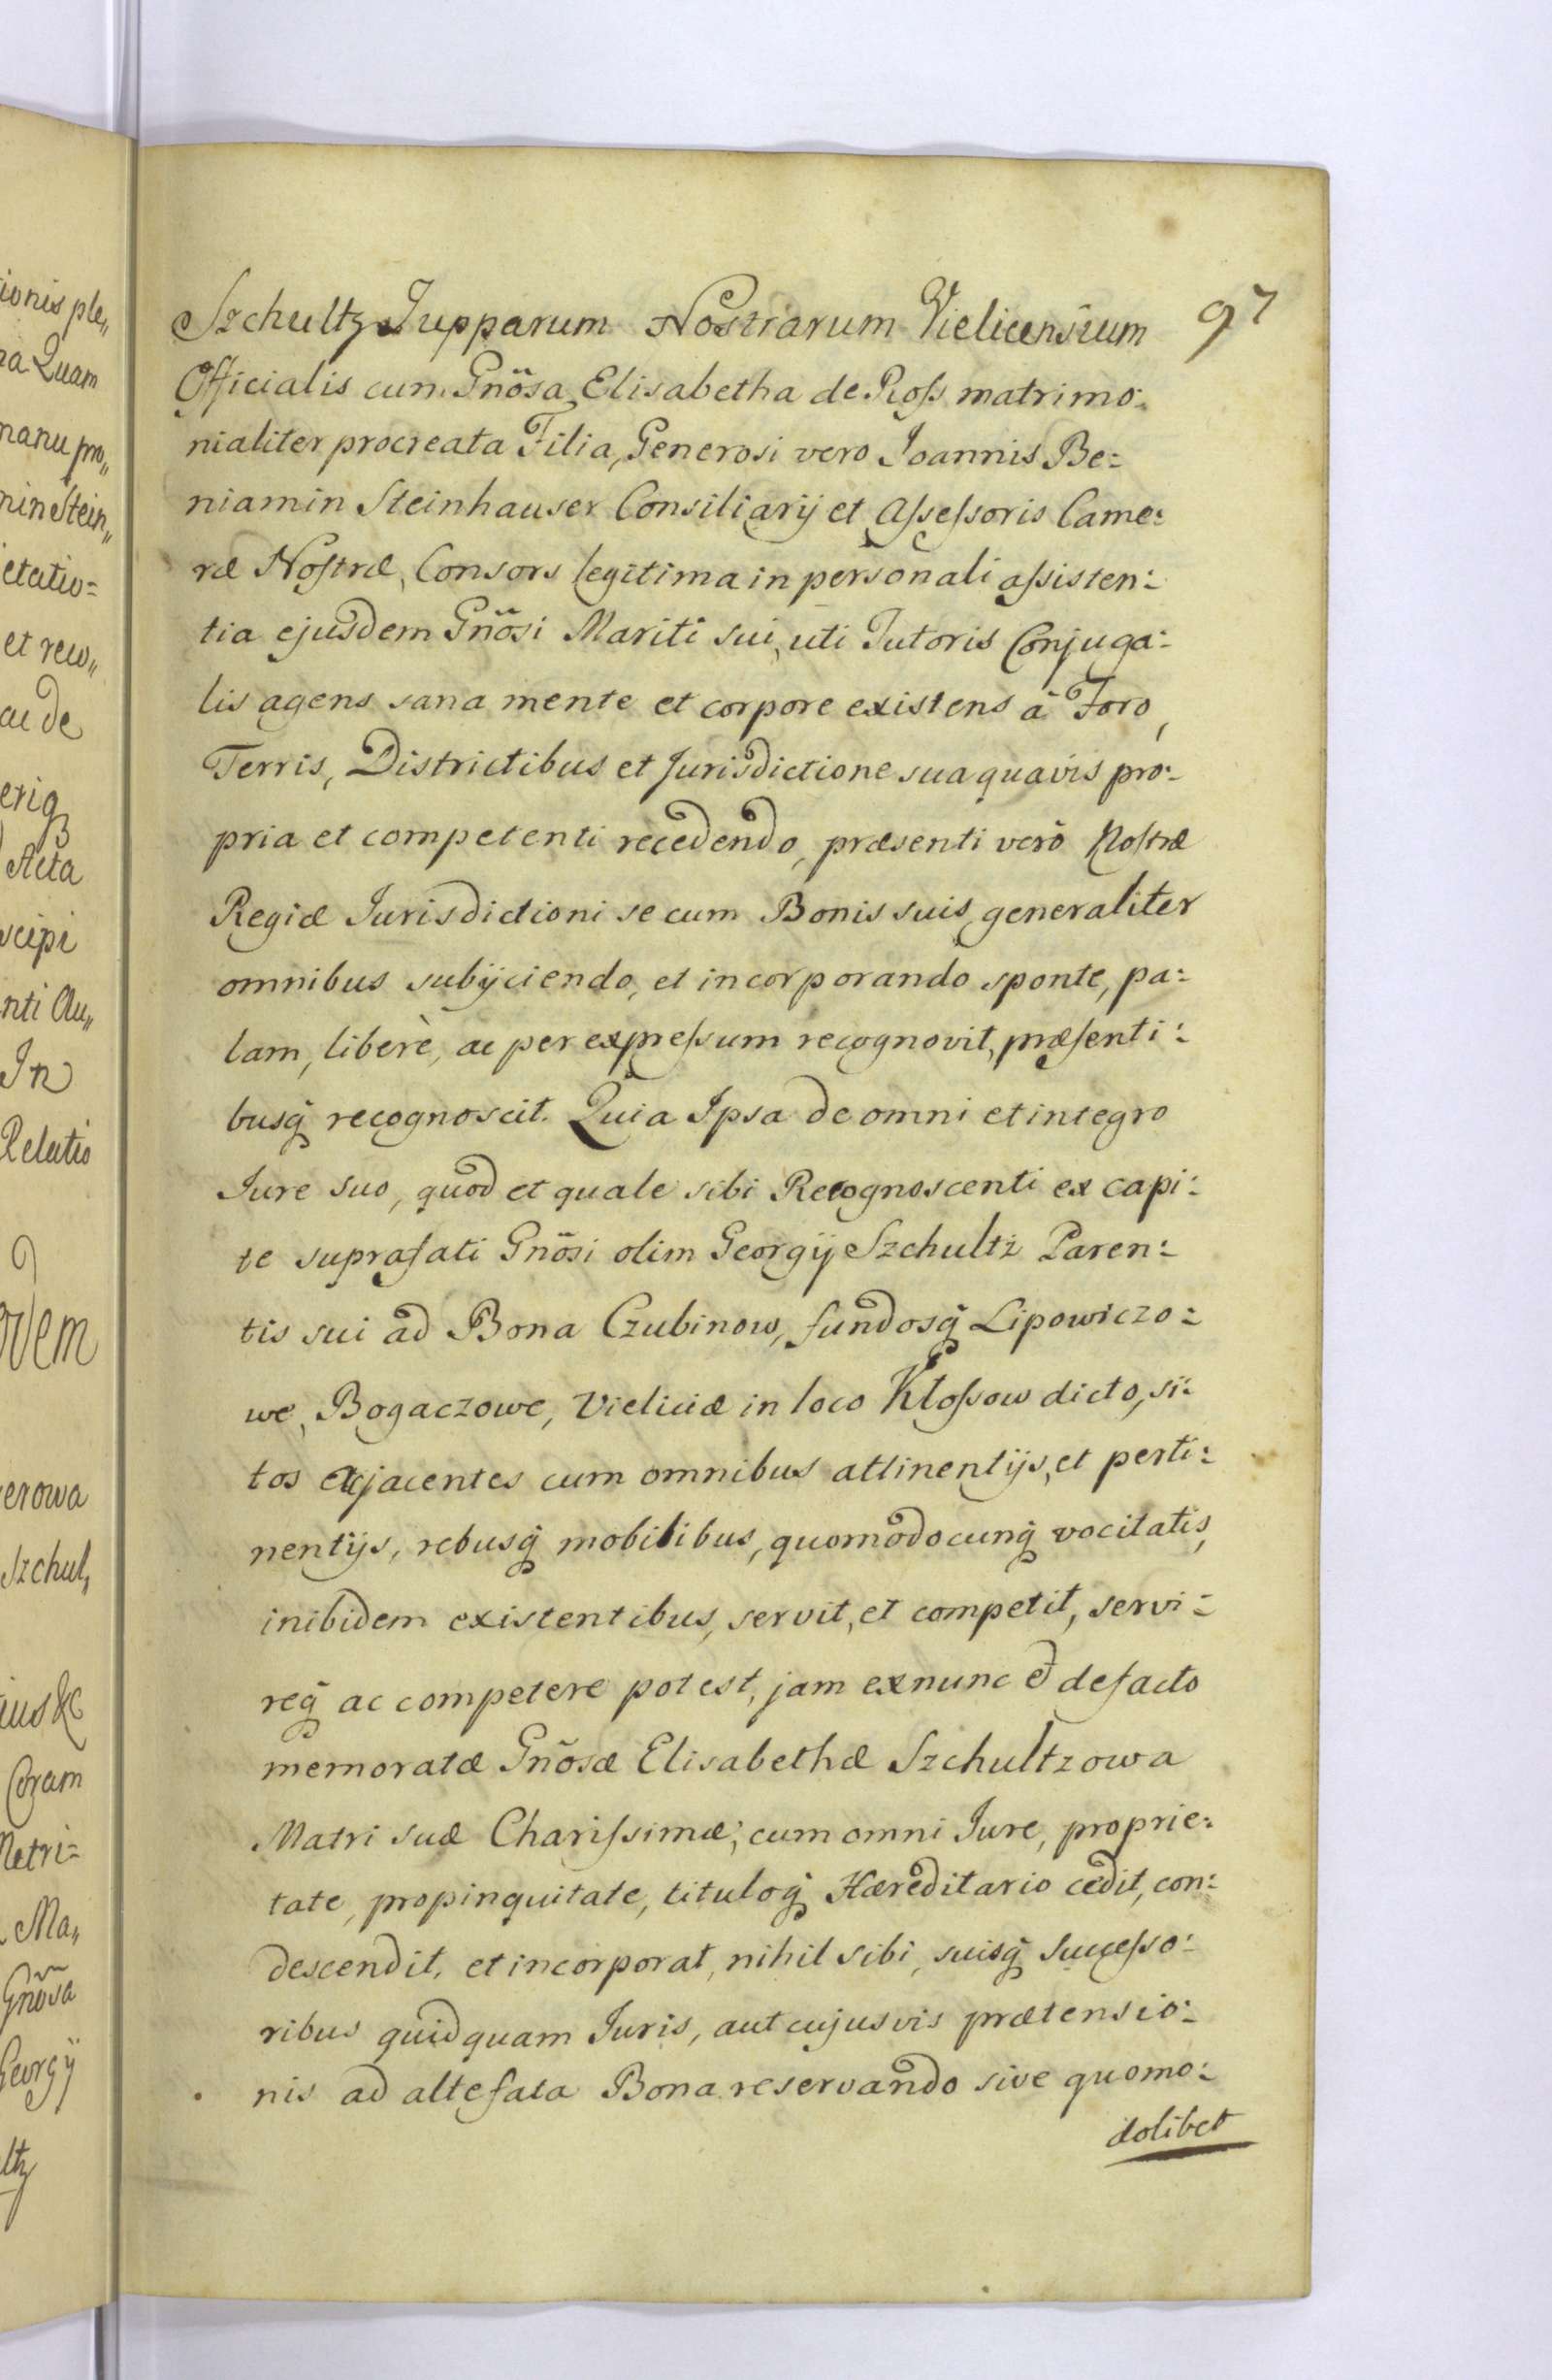 Szchultz Jupparum Nostrarum Vielicensium 97
Officialis cum Gnõsa Elisabetha de Roſs matrimo:
nialiter procreata Filia, Generosi vero Joannis Be:
niamin Steinhauser Consiliarij et Aſseſsoris Came:
ræ Noſtræ, Consors legitima in personali aſsisten:
tia ejusdem Gnõsi Mariti sui, uti Tutoris Conjuga:
lis agens sana mente et corpore existens à Foro,
Terris, Districtibus et Jurisdictione sua quavis pro:
pria et competenti recedendo, præsenti verò Noſtræ
Regiæ Jurisdictioni se cum Bonis suis generaliter
omnibus subijciendo, et incorporando sponte, pa:
lam, liberè, ac per expreſsum recognovit, præſenti:
busq recognoscit. Quia Ipsa de omni et integro
Jure suo, quod et quale sibi Recognoscenti ex capi:
te suprafati Gnõsi olim Georgij Szchultz Paren:
tis sui ad Bona Czubinow, fundosq Lipowiczo:
we, Bogaczowe, Vieliciæ in loco Kłoſsow dicto, si:
tos adjacentes cum omnibus attinentijs, et perti:
nentijs, rebusq mobilibus, quomodocunq vocitatis,
inibidem existentibus, servit, et competit, servi:
req ac competere potest, jam exnunc et defacto
memoratæ Gnõsæ Elisabethæ Szchultzowa
Matri suæ Chariſsimæ, cum omni Jure, proprie:
tate, propinquitate, tituloq Hæreditario cedit, con:
descendit, et incorporat, nihil sibi, suisq Succeſso:
ribus quidquam Juris, aut cujusvis prætensio:
nis ad altefata Bona reservando sive quomo:
dolibet
ionis ple,,
na Quam
manu pro,,
min Stein,,
etatio=
et reco,,
ac de
eriq
Acta
scipi
nti Au,,
In
Relatio
ovem
erowa
Szchul,
ius &c
Coram
Metri=
Ma,,
Gnõsa
Georgij
ltz